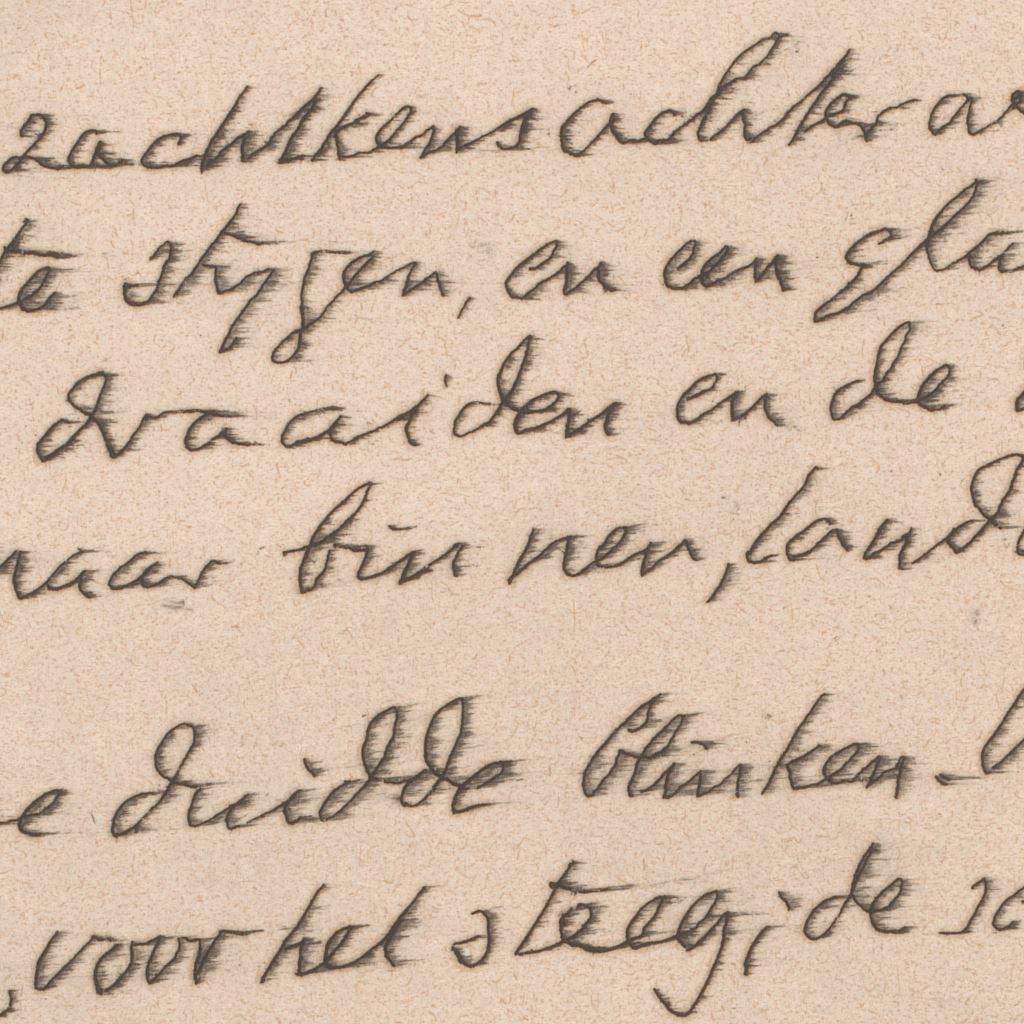 zachtkens achter
te stygen, en een
draaiden en de
naar binnen,
duidde blinken.
, voor het steeg; de